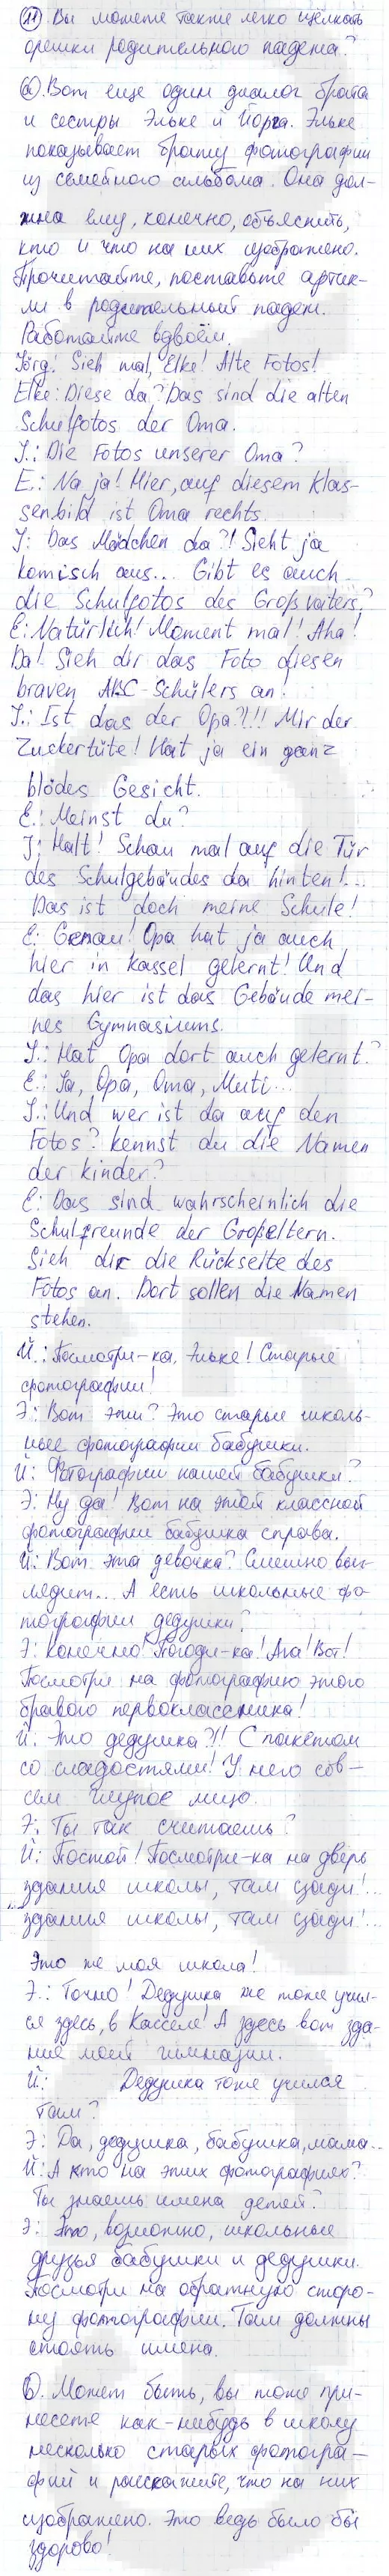 11 Вы можете также легко щёлкать
орешки родительного падежа?
а). Вот еще один диалог брата
и сестры Эльке и Йорга. Эльке
показывает брату фотографии
из семейного альбома. Она дол-
жна ему, конечно, объяснить,
кто и что на них изображено.
Прочитайте, поставьте артик-
ли в родительный падеж.
Работайте вдвоём.
Jörg: Sieh mal, Elke! Alte Fotos!
Elke: Diese da? Das sind die alten
Schulfotos der Oma.
J.: Die Fotos unserer Oma?
E.: Na ja! Hier, auf diesem Klas-
senbild ist Oma rechts.
J: Das Mädchen da?! Sieht ja
komisch aus... Gibt es auch
die Schulfotos des Großvaters?
E: Natürlich! Moment mal! Aha!
Da! Sieh dir das Foto diesen
braven ABC-Schülers an!
J.: Ist das der Opa?!!! Mir der
Zuckertüte! Hat ja ein ganz
blödes Gesicht.
E.: Meinst du?
J: Halt! Schau mal auf die Tür
des Schulgebäudes da hinten!...
Das ist doch meine Schule!
E: Genau! Opa hat ja auch
hier in Kassel gelernt! Und
das hier ist das Gebäude mei-
nes Gymnasiums.
J.: Hat Opa dort auch gelernt?
E.: Ja, Opa, Oma, Muti...
J.: Und wer ist da auf den
Fotos? Kennst du die Namen
der Kinder?
E: Das sind wahrscheinlich die
Schulfreunde der Großeltern.
Sieh dir die Rückseite des
Fotos an. Dort sollen die Namen
stehen.
Й.: Посмотри-ка, Эльке! Старые
фотографии!
Э: Вот эти? Это старые школь-
ные фотографии бабушки.
Й: Фотографии нашей бабушки?
Э: Ну да! Вот на этой классной
фотографии бабушка справа.
Й: Вот эта девочка? Смешно выг-
лядит... А есть школьные фо-
тографии дедушки?
Э: Конечно! Погоди-ка! Ага! Вот!
Посмотри на фотографию этого
бравого первоклассника!
Й: Это дедушка?!! С пакетом
со сладостями! У него сов-
сем глупое лицо.
Э: Ты так считаешь?
Й: Постой! Посмотри-ка на дверь
здания школы, там сзади!...
здания школы, там сзади!...
Это же моя школа!
Э.: Точно! Дедушка же тоже учил-
ся здесь, в Касселе! А здесь вот зда-
ние моей гимназии.
Й: Дедушка тоже учился
там?
Э: Да, дедушка, бабушка, мама...
Й: А кто на этих фотографиях?
Ты знаешь имена детей?
Э: Это, возможно, школьные
друзья бабушки и дедушки.
Посмотри на обратную сторо-
ну фотографии. Там должны
стоять имена.
б). Может быть, вы тоже при-
несете как-нибудь в школу
несколько старых фотогра-
фий и расскажите, что на них
изображено. Это ведь было бы
здорово!